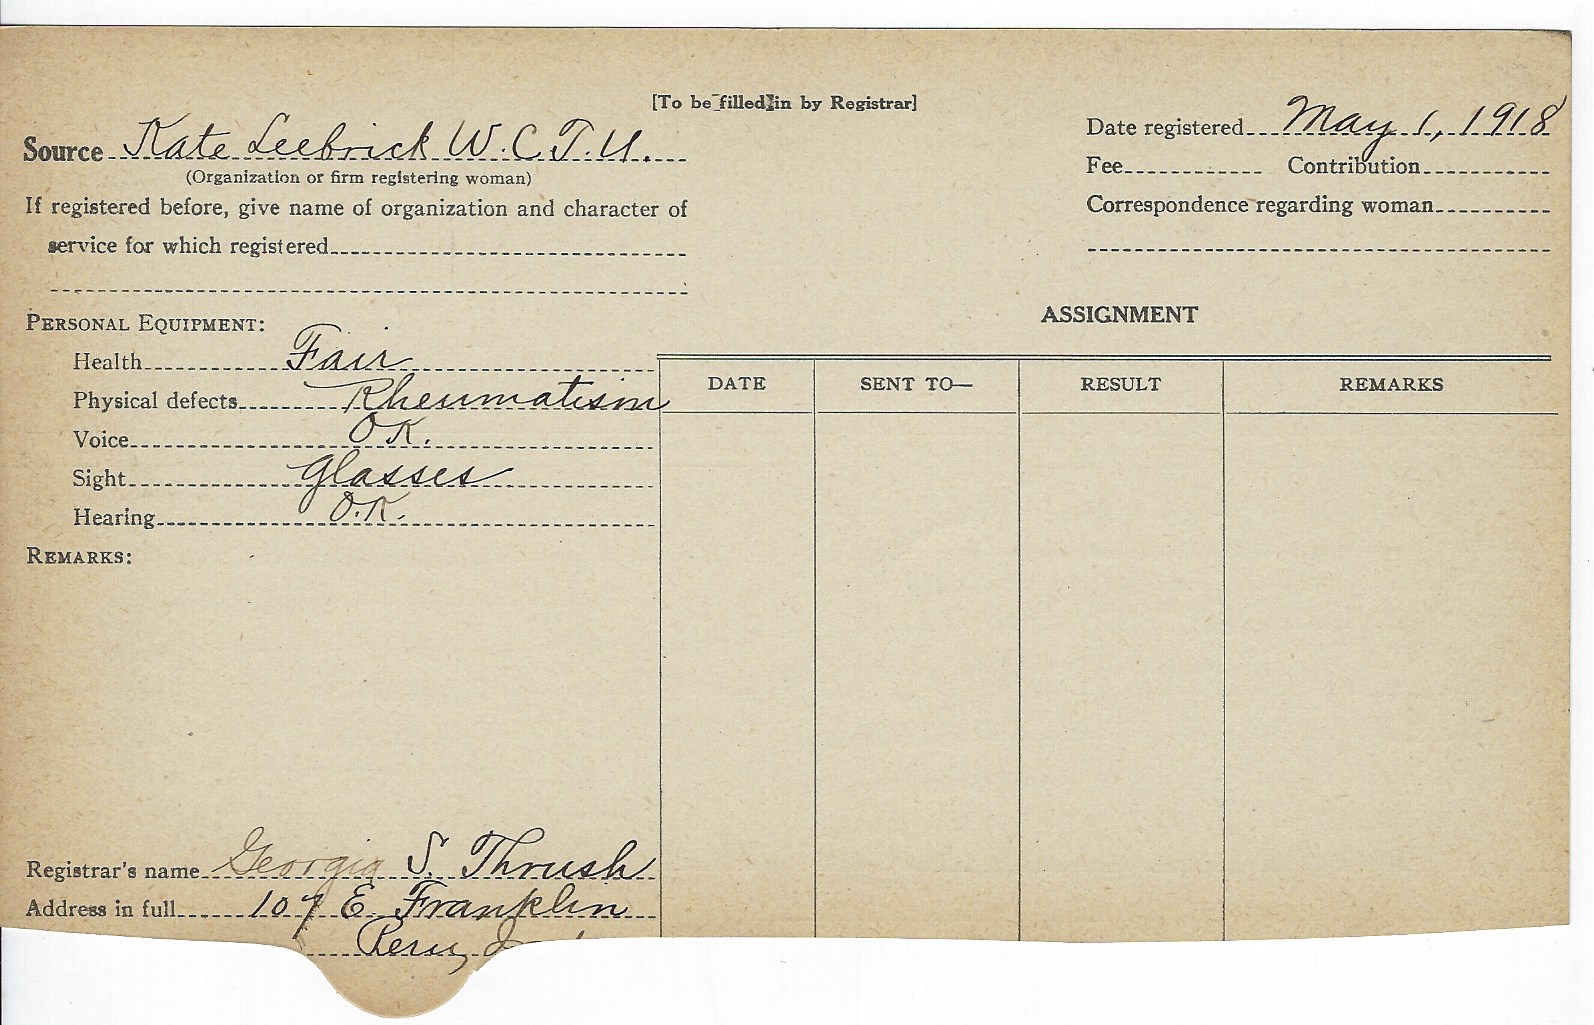 [To be filled in by Registrar]
Source Kate Leebrick W.C.T.U.
(Organization or firm registering woman)
If registered before, give name of organization and character of
service for which registered
Date registered May 1, 1918
Fee Contribution
Correspondence regarding woman
PERSONAL EQUIPMENT:
Health Fair
Physical defects Rheumatism
Voice O K.
Sight Glasses
Hearing O.K.
REMARKS:
ASSIGNMENT
DATE SENT TO— RESULT REMARKS
Registrar's name Georgia S. Thrush
Address in full 107 E Franklin
Peru,